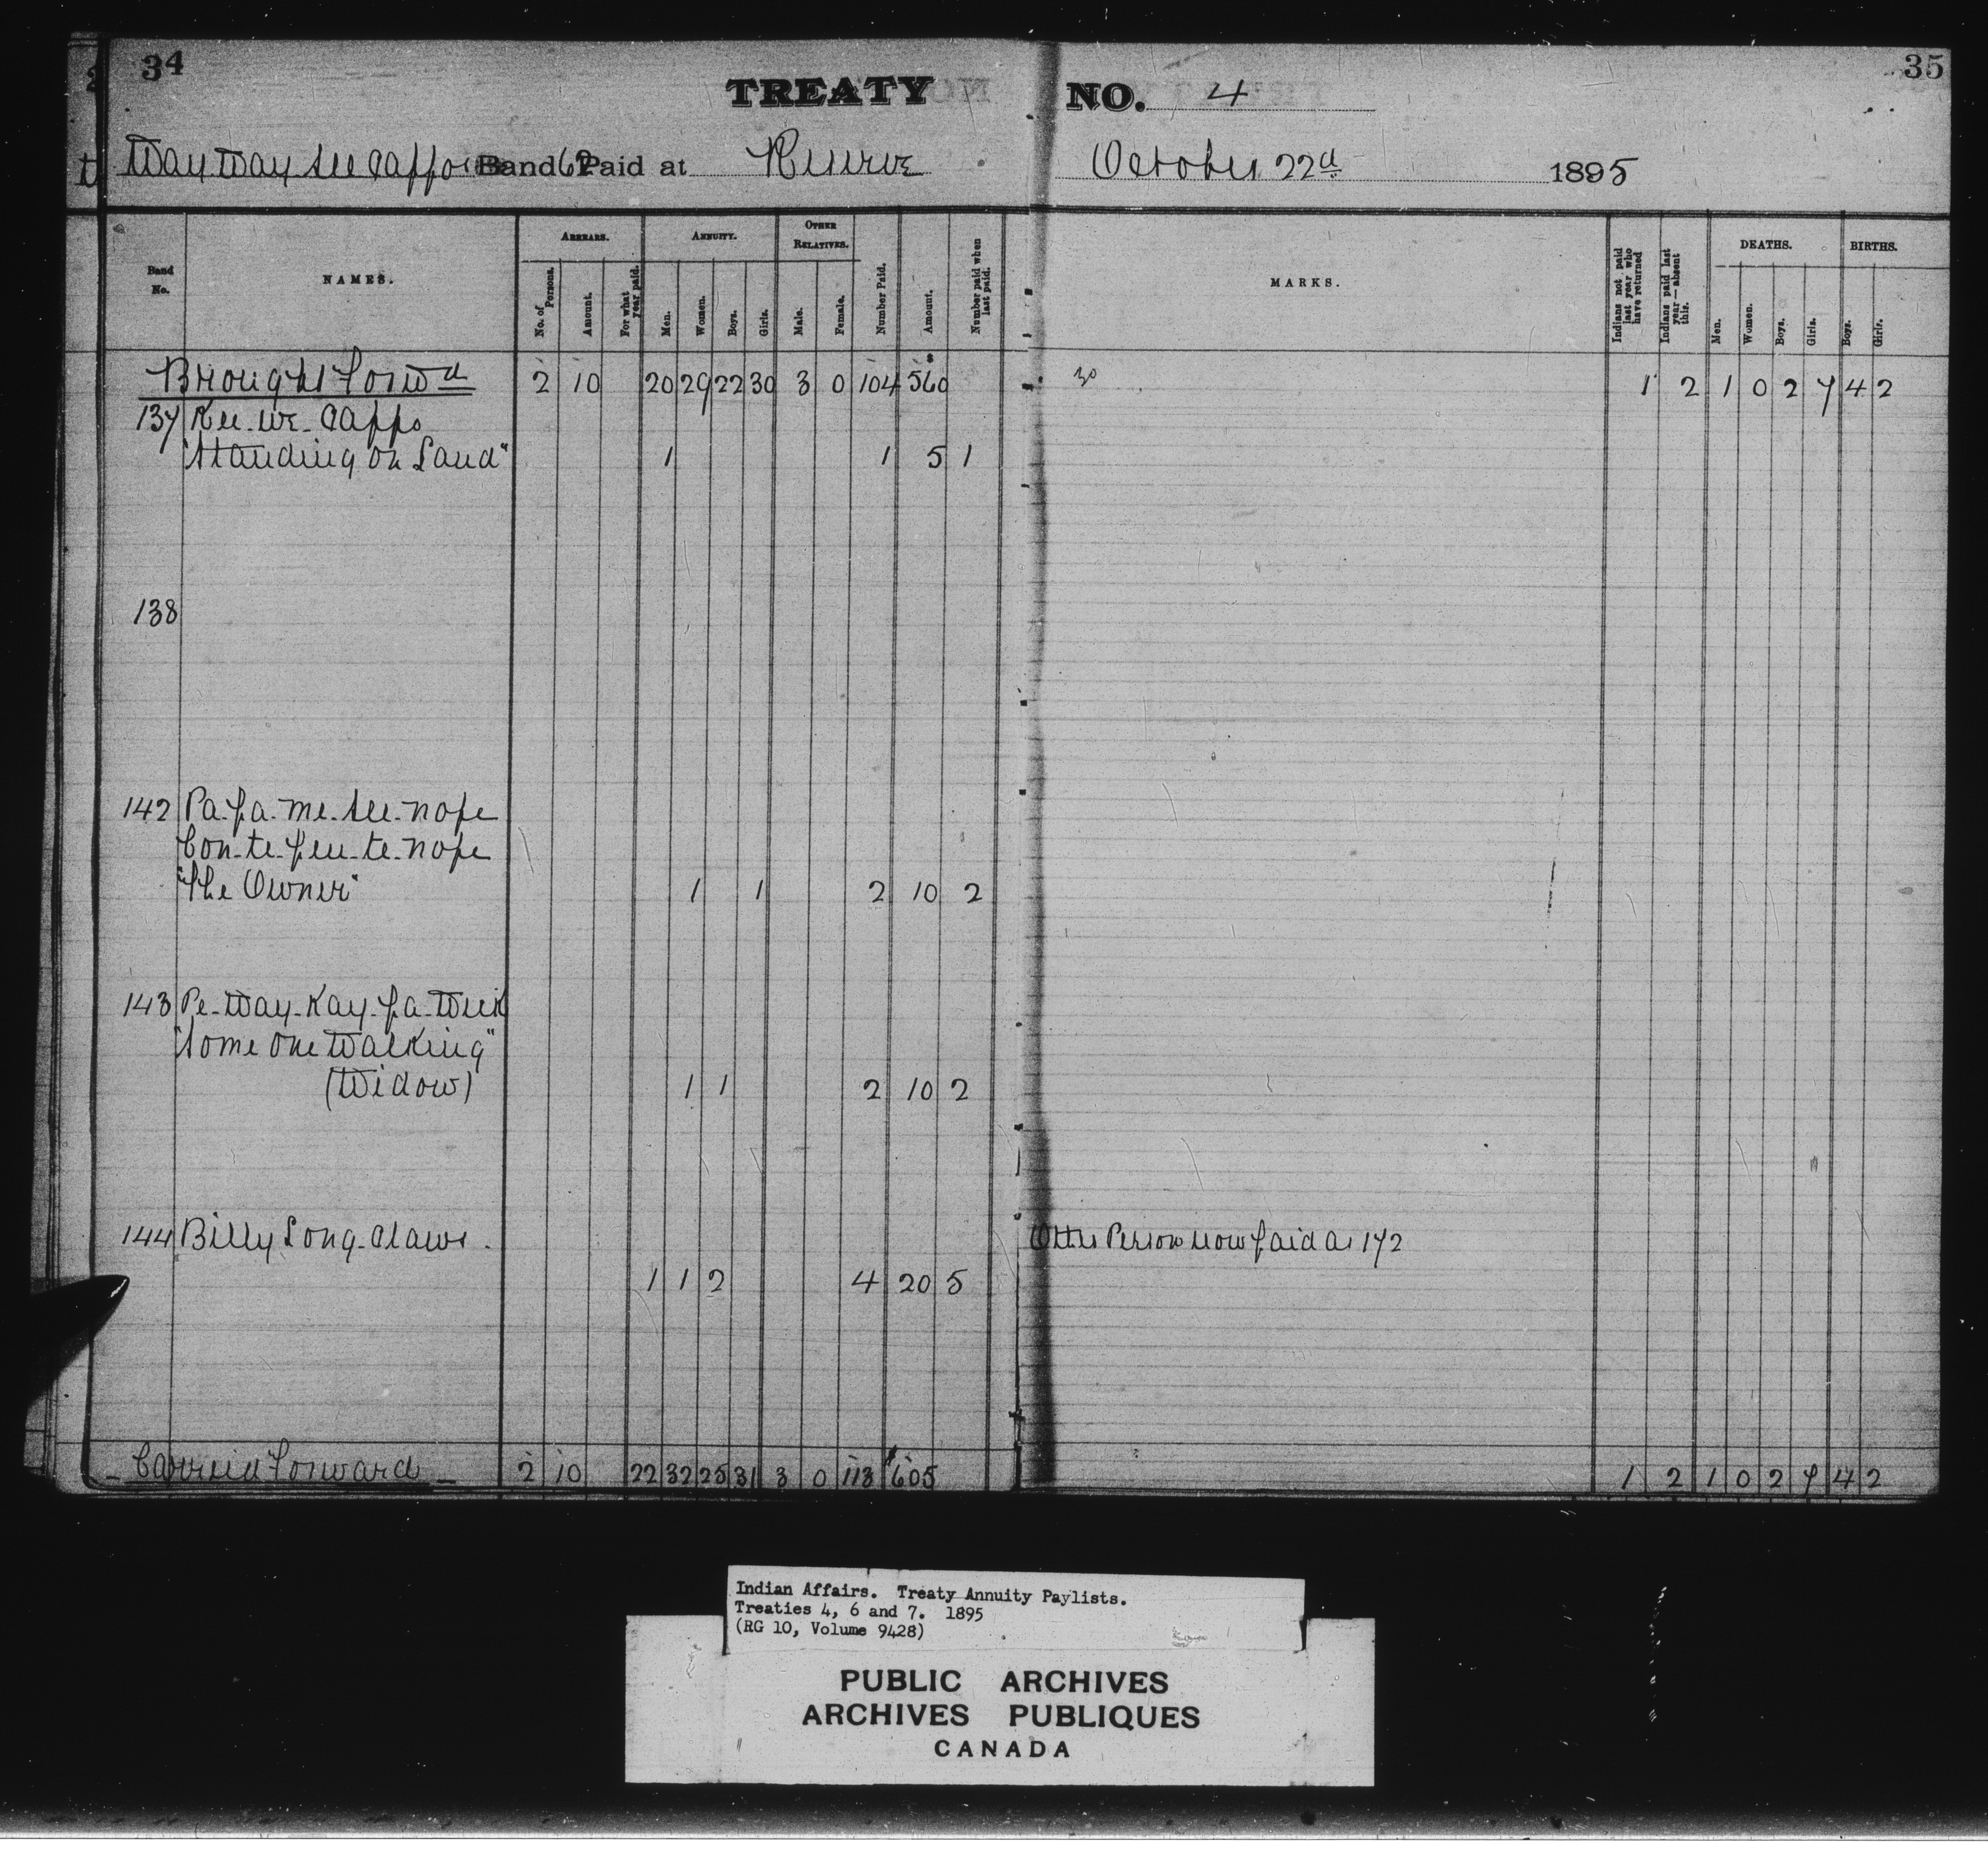 34
TREATY NO. 4
35
Way Way see Cappo Band 62 Paid at Reserve October 22d 1895
Band No.
NAMES.
ARREARS.
No. of Persons.
Amount.
For what year paid.
ANNUITY.
Men.
Women.
Boys.
Girls.
OTHER RELATIVES.
Male.
Female.
Number Paid.
Amount.
Number paid when last paid.
MARKS.
Indians not paid last year who have returned
Indians paid last year—absent this.
DEATHS.
Men.
Women.
Boys.
Girls.
BIRTHS.
Boys.
Girls.
Brought Forwd 2 10 20 29 22 30 3 0 104 $560 1 2 1 0 2 7 4 2
137 Kee-we-Capps
"Standing on Land" 1 1 5 1
138
142 Pa-pa-me-see-nope
Con-te-peu-te-nope
"The Owner" 1 1 2 10 2
143 Pe-Way-Kay-pa-Week
"Some One Walking"
(Widow) 1 1 2 10 2
144 Billy Long-Claws. Other Person now paid as 172
1 1 2 4 20 5
Carried Forward 2 10 22 32 25 31 3 0 113 $605 1 2 1 0 2 7 4 2
Indian Affairs. Treaty Annuity Paylists.
Treaties 4, 6 and 7. 1895
(RG 10, Volume 9428)
PUBLIC ARCHIVES
ARCHIVES PUBLIQUES
CANADA